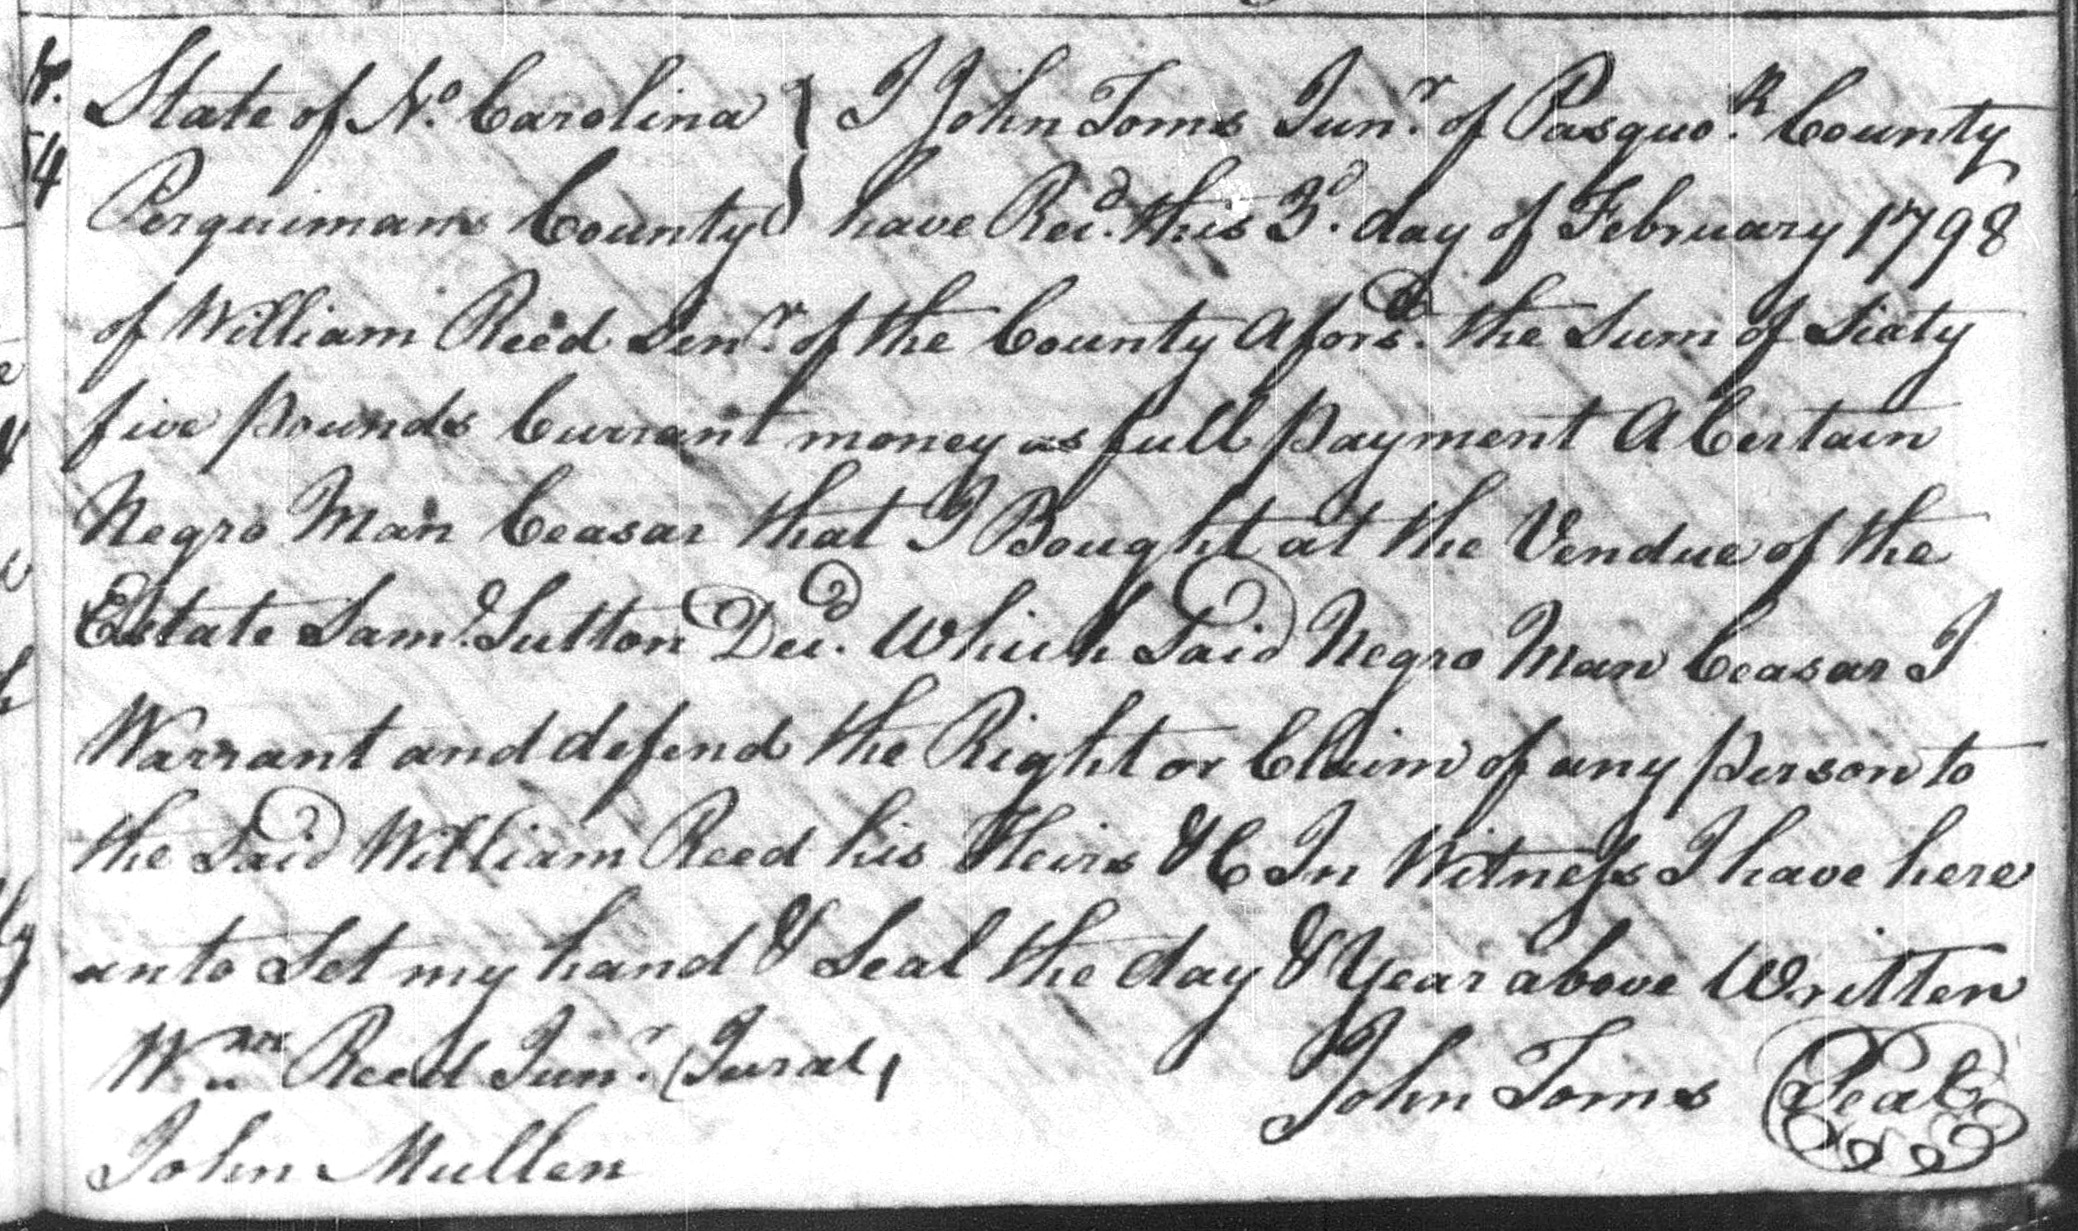 State of No. Carolina } I John Toms Junr. of Pasquo.k County
Perquimans County } have Recd. this 3d. day of February 1798
of William Reed Senr. of the County Aforsd. the Sum of Sixty
five pounds Currant money as full payment A Certain
Negro Man Ceasar that I Bought at the Vendue of the
Estate Saml. Sutton Decd. Which Said Negro Man Ceasar I
Warrant and defend the Right or Claim of any person to
the Said William Reed his Heirs &C In Witness I have here
unto Set my hand & Seal the day & Year above Written
Wm Reed Junr. (Jurat, John Toms Seal
John Mullen